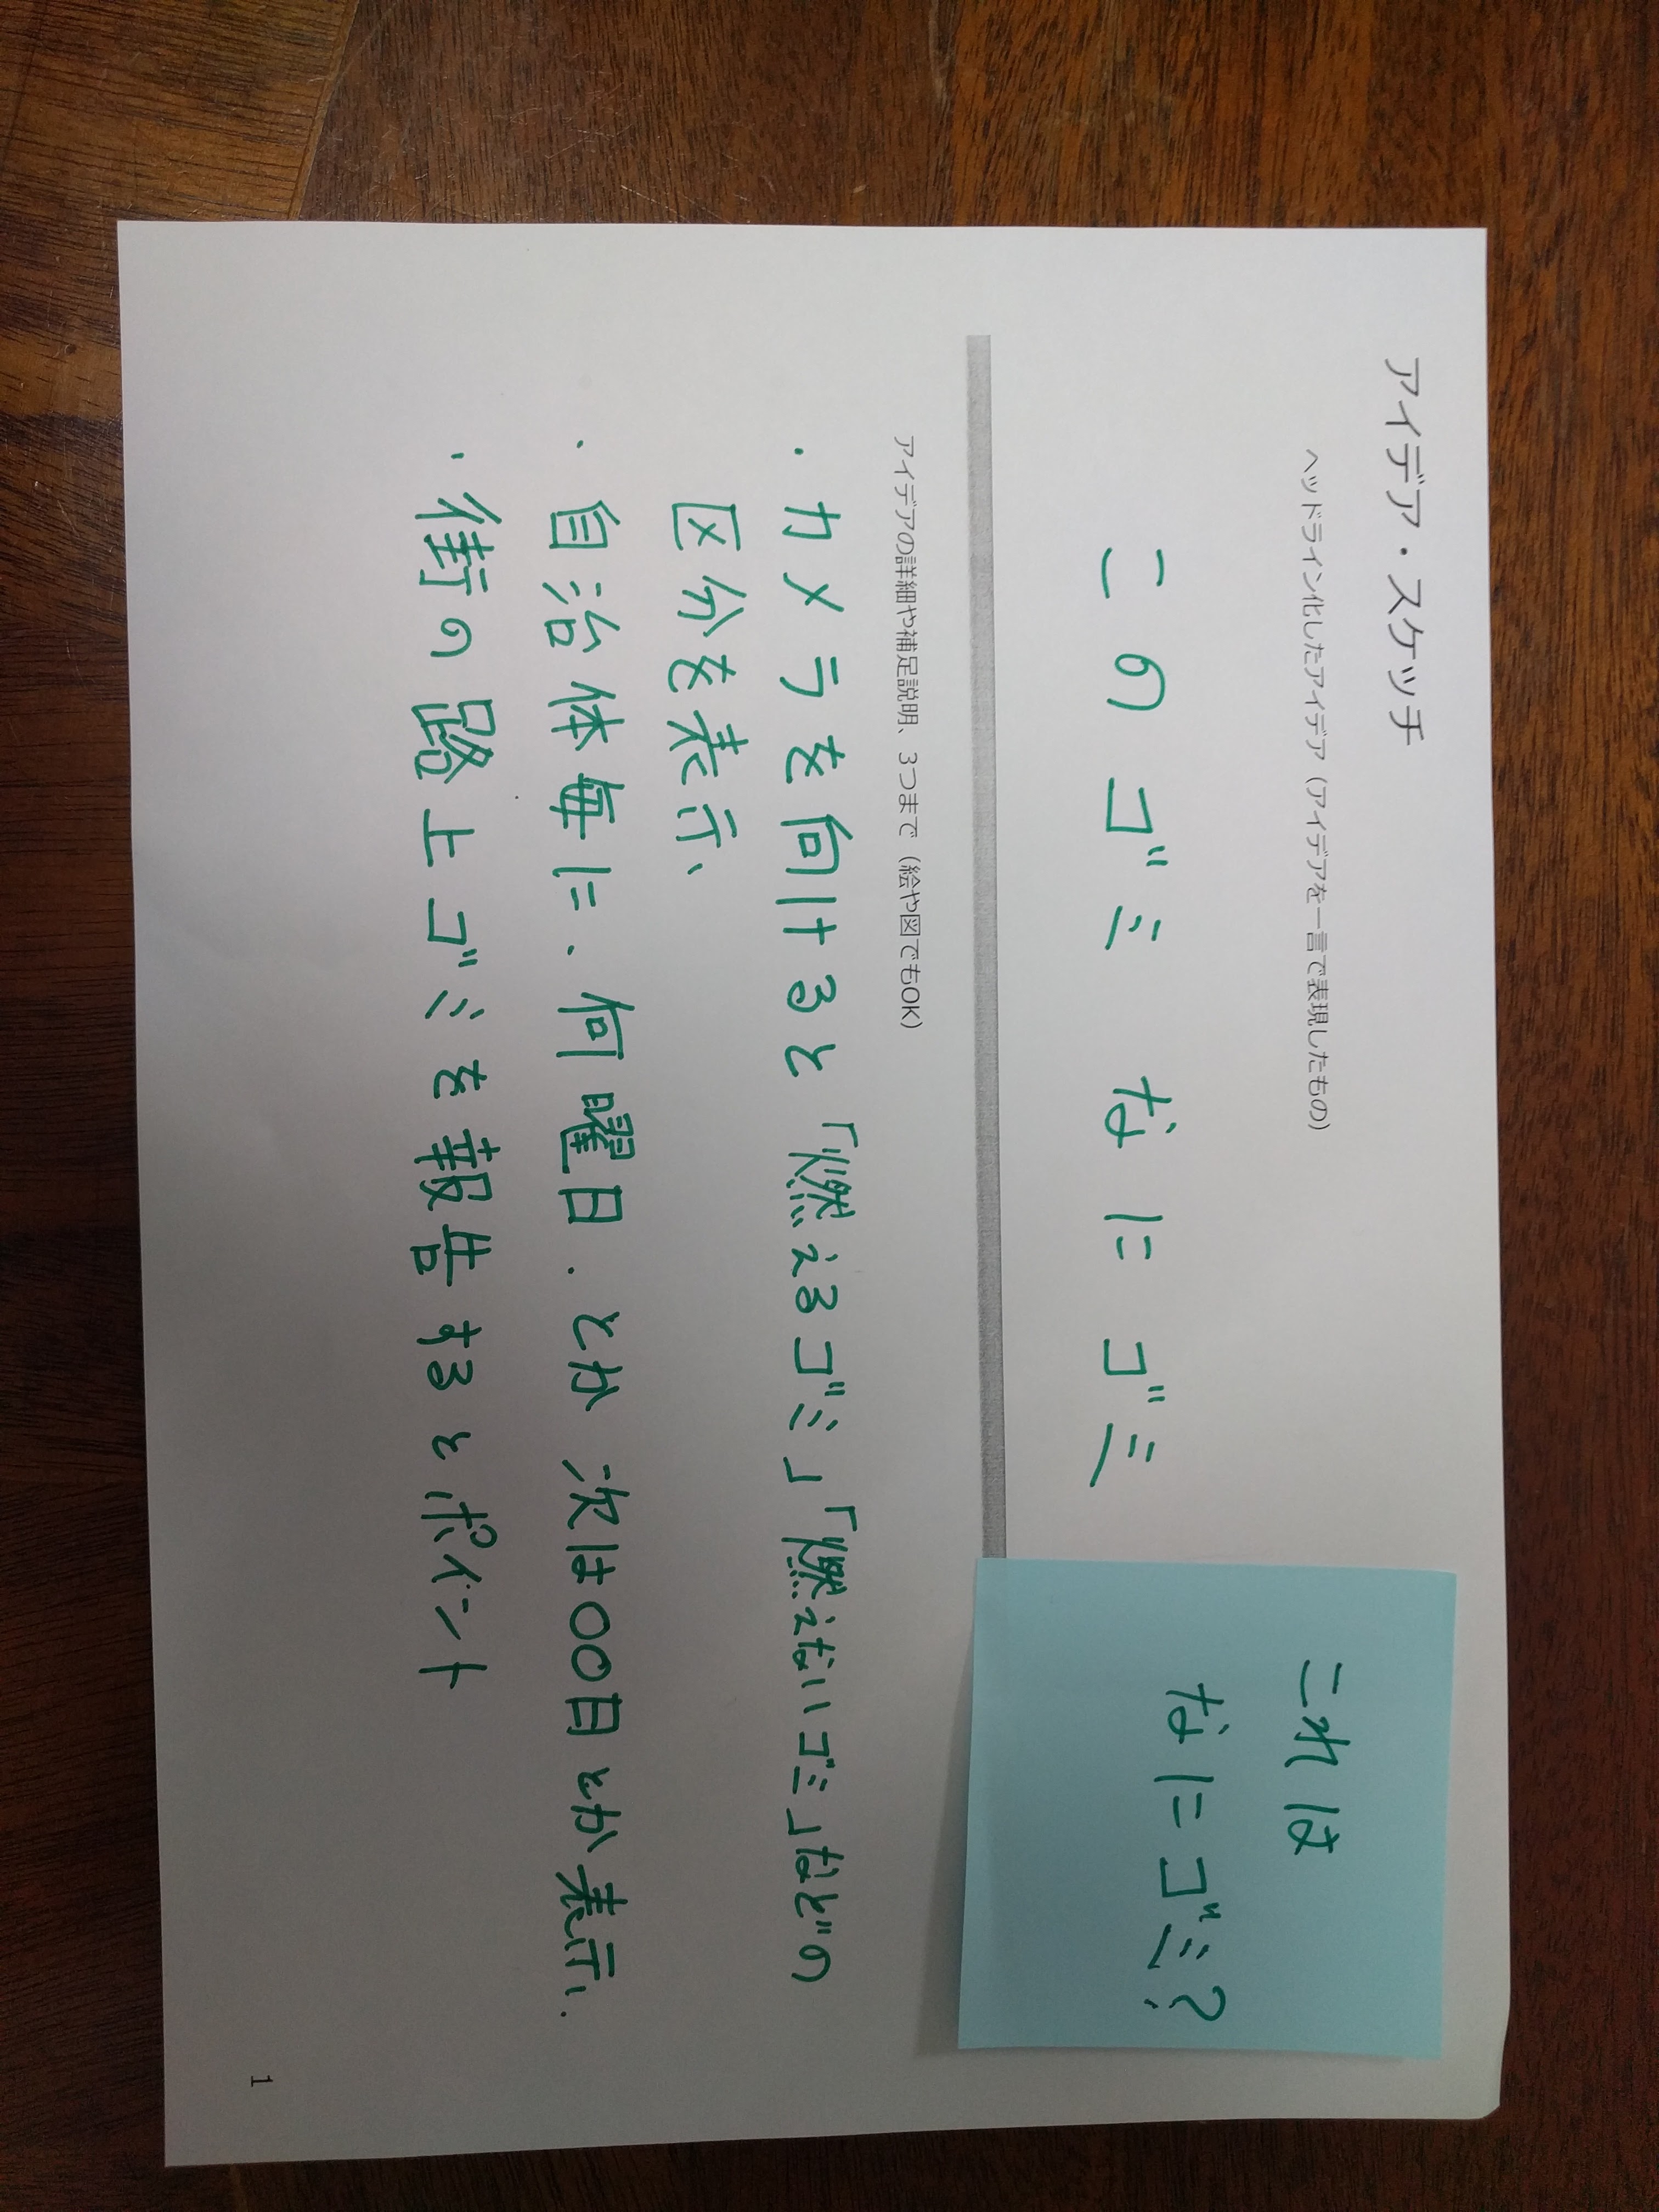 アイデア・スケッチ
ヘッドライン化したアイデア（アイデアを一言で表現したもの）
このゴミ なにゴミ
これは
なにゴミ?
アイデアの詳細や補足説明、3つまで（絵や図でもOK）
・カメラを向けると「燃えるゴミ」「燃えないゴミ」などの
区分を表示、
・自治体毎に、何曜日、とか 次は〇〇日とか表示、
・街の路上ゴミを報告するとポイント
1